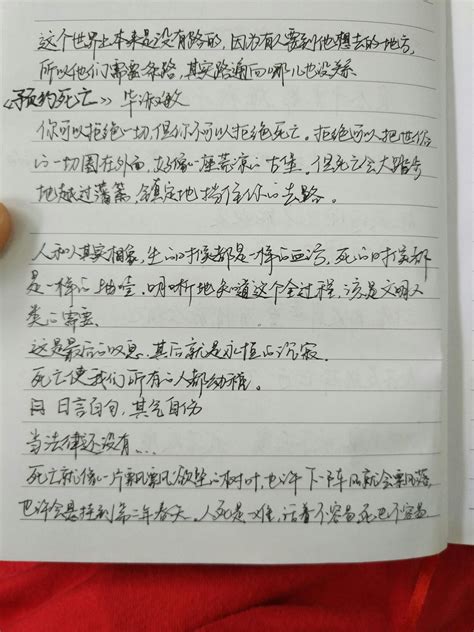 这个世界上本来是没有路的，因为有人要到他想去的地方，
所以他们需要条路，其实路通向哪儿也没关系
《预约死亡》毕淑敏
你可以拒绝一切，但你不可以拒绝死亡。拒绝可以把世俗
的一切围在外面，好像一座荒凉的古堡。但死亡会大踏步
地越过藩篱，镇定地挡住你的去路。
人和人其实相象，生的时候都是一样的血污，死的时候都
是一样的抽噎，明晰地知道这个全过程，该是文明人
类的需要
这是最后的叹息，其后就是永恒的沉寂。
死亡使我们所有的人都幼稚。
日 日言自句，其气自伤
当法律还没有...
死亡就像一片飘飘欲坠的树叶，也许下一阵风就会飘落
也许会悬挂到第二年春天。人死是一难，活着不容易死也不容易